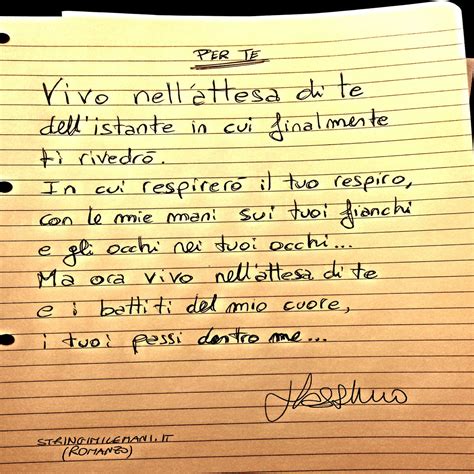 PER TE
Vivo nell'attesa di te
dell'istante in cui finalmente
ti rivedrò.
In cui respirerò il tuo respiro,
con le mie mani sui tuoi fianchi
e gli occhi nei tuoi occhi...
Ma ora vivo nell'attesa di te
e i battiti del mio cuore,
i tuoi passi dentro me...
STRINGIMILEMANI.IT
(ROMANZO)